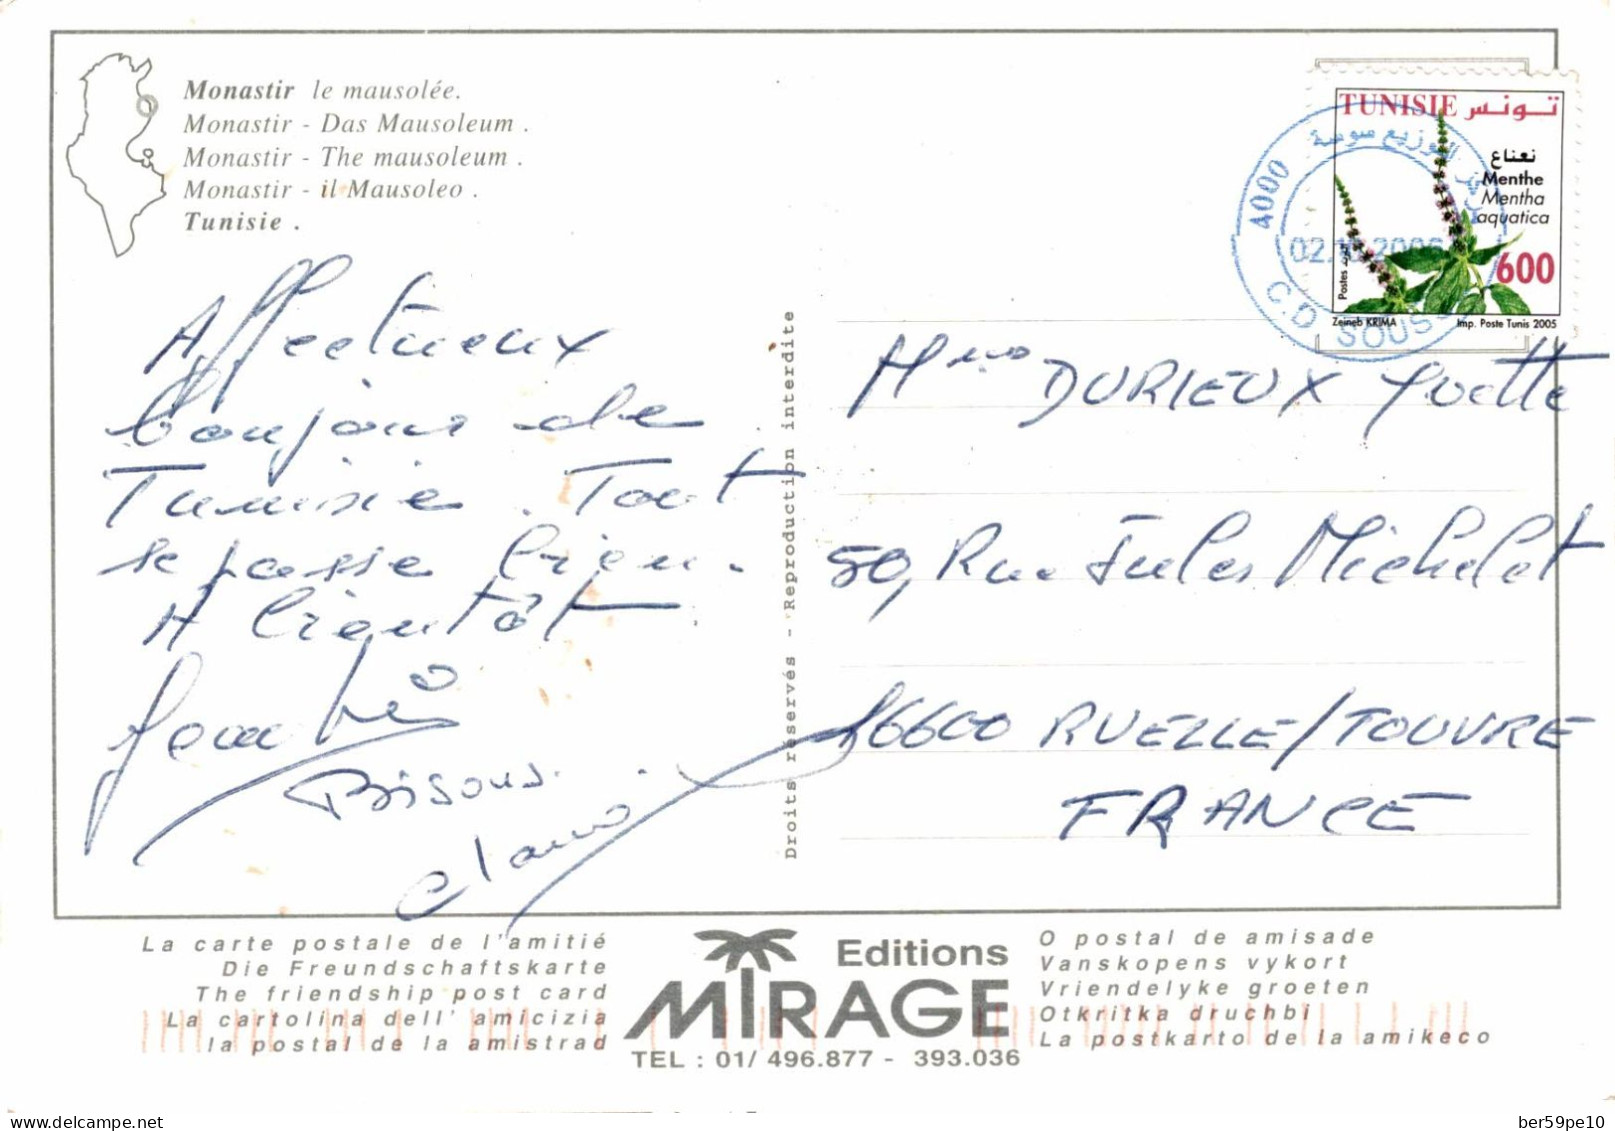 Monastir le mausolée.
Monastir - Das Mausoleum .
Monastir - The mausoleum .
Monastir - il Mausoleo .
Tunisie .
TUNISIE تونس
نعناع
Menthe
Mentha
aquatica
600
Postes البريد
Zeineb KRIMA Imp. Poste Tunis 2005
4000
التوزيع سوسة
02.10.2006
C.D SOUSSE
Affectueux
bonjour de
Tunisie. Tout
se passe bien.
A bientôt
Bisous.
Droits réservés - Reproduction interdite
Mme DURIEUX Yvette
50, Rue Jules Michelet
16600 RUELLE/TOUVRE
FRANCE
La carte postale de l'amitié
Die Freundschaftskarte
The friendship post card
La cartolina dell' amicizia
la postal de la amistrad
Editions
MIRAGE
TEL : 01/ 496.877 - 393.036
O postal de amisade
Vanskopens vykort
Vriendelyke groeten
Otkritka druchbi
La postkarto de la amikeco
ber59pe10